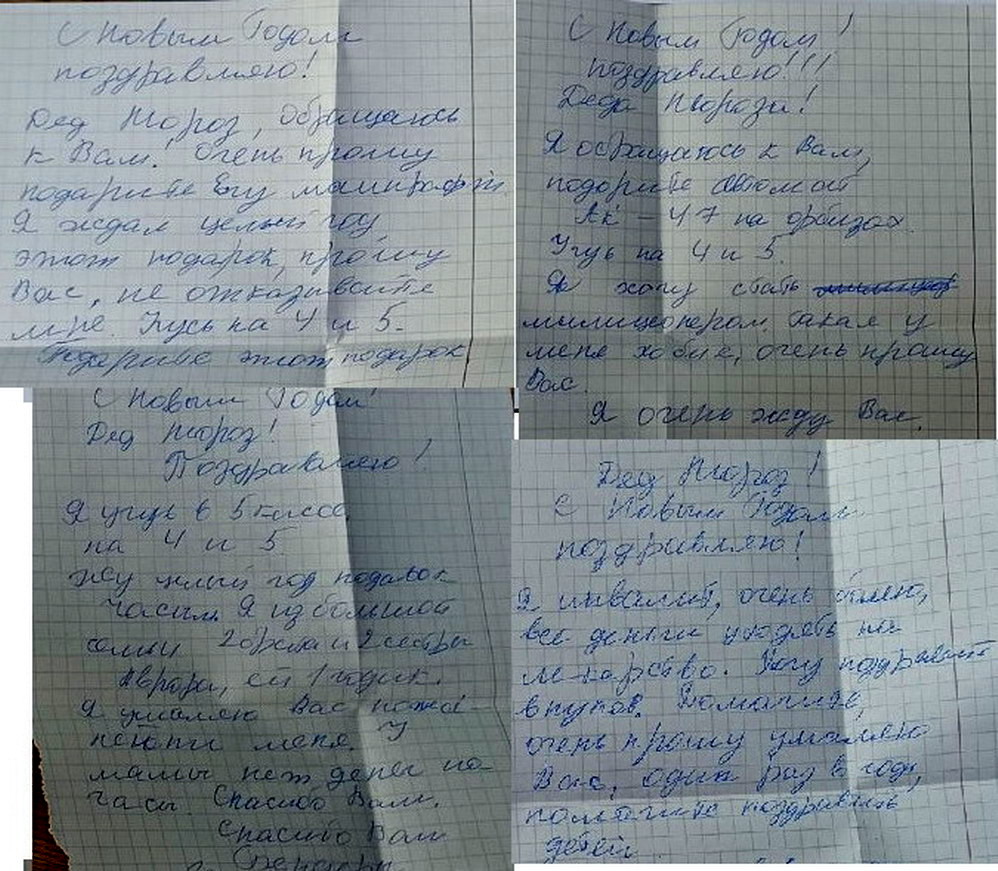 С Новым Годом
поздравляю!
Дед Мороз, обращаюсь
к Вам! Очень прошу
подарите Егу
Я ждал целый год
этот подарок, прошу
Вас, не отказывайте
мне. Учусь на 4 и 5.
Подарите этот подарок
С Новым Годом!
поздравляю!!!
Деда Мороза!
Я обращаюсь к Вам,
подорите автомат
Ак-47 на орбизах.
Учусь на 4 и 5.
Я хочу стать
милиционером. такая у
меня хобие, очень прошу
Вас.
Я очень жду Вас.
С Новым Годом!
Дед Мороз!
Поздравляю!
Я учусь в 5 классе
на 4 и 5.
жду целый год подарок
часы. Я из большой
семьи 2 брата и 2 сестры
Аврора, ей 1 годик.
Я умоляю Вас
меня. У
мамы нет денег на
часы. Спасибо Вам.
Спасибо Вам
Дед Мороз!
С Новым Годом
поздравляю!
Я инвалит, очень болею,
все деньги уходять на
лекарство. Хочу поздравит
внуков.
очень прошу умаляю
Вас, один раз в году,
помогите поздравить
детей